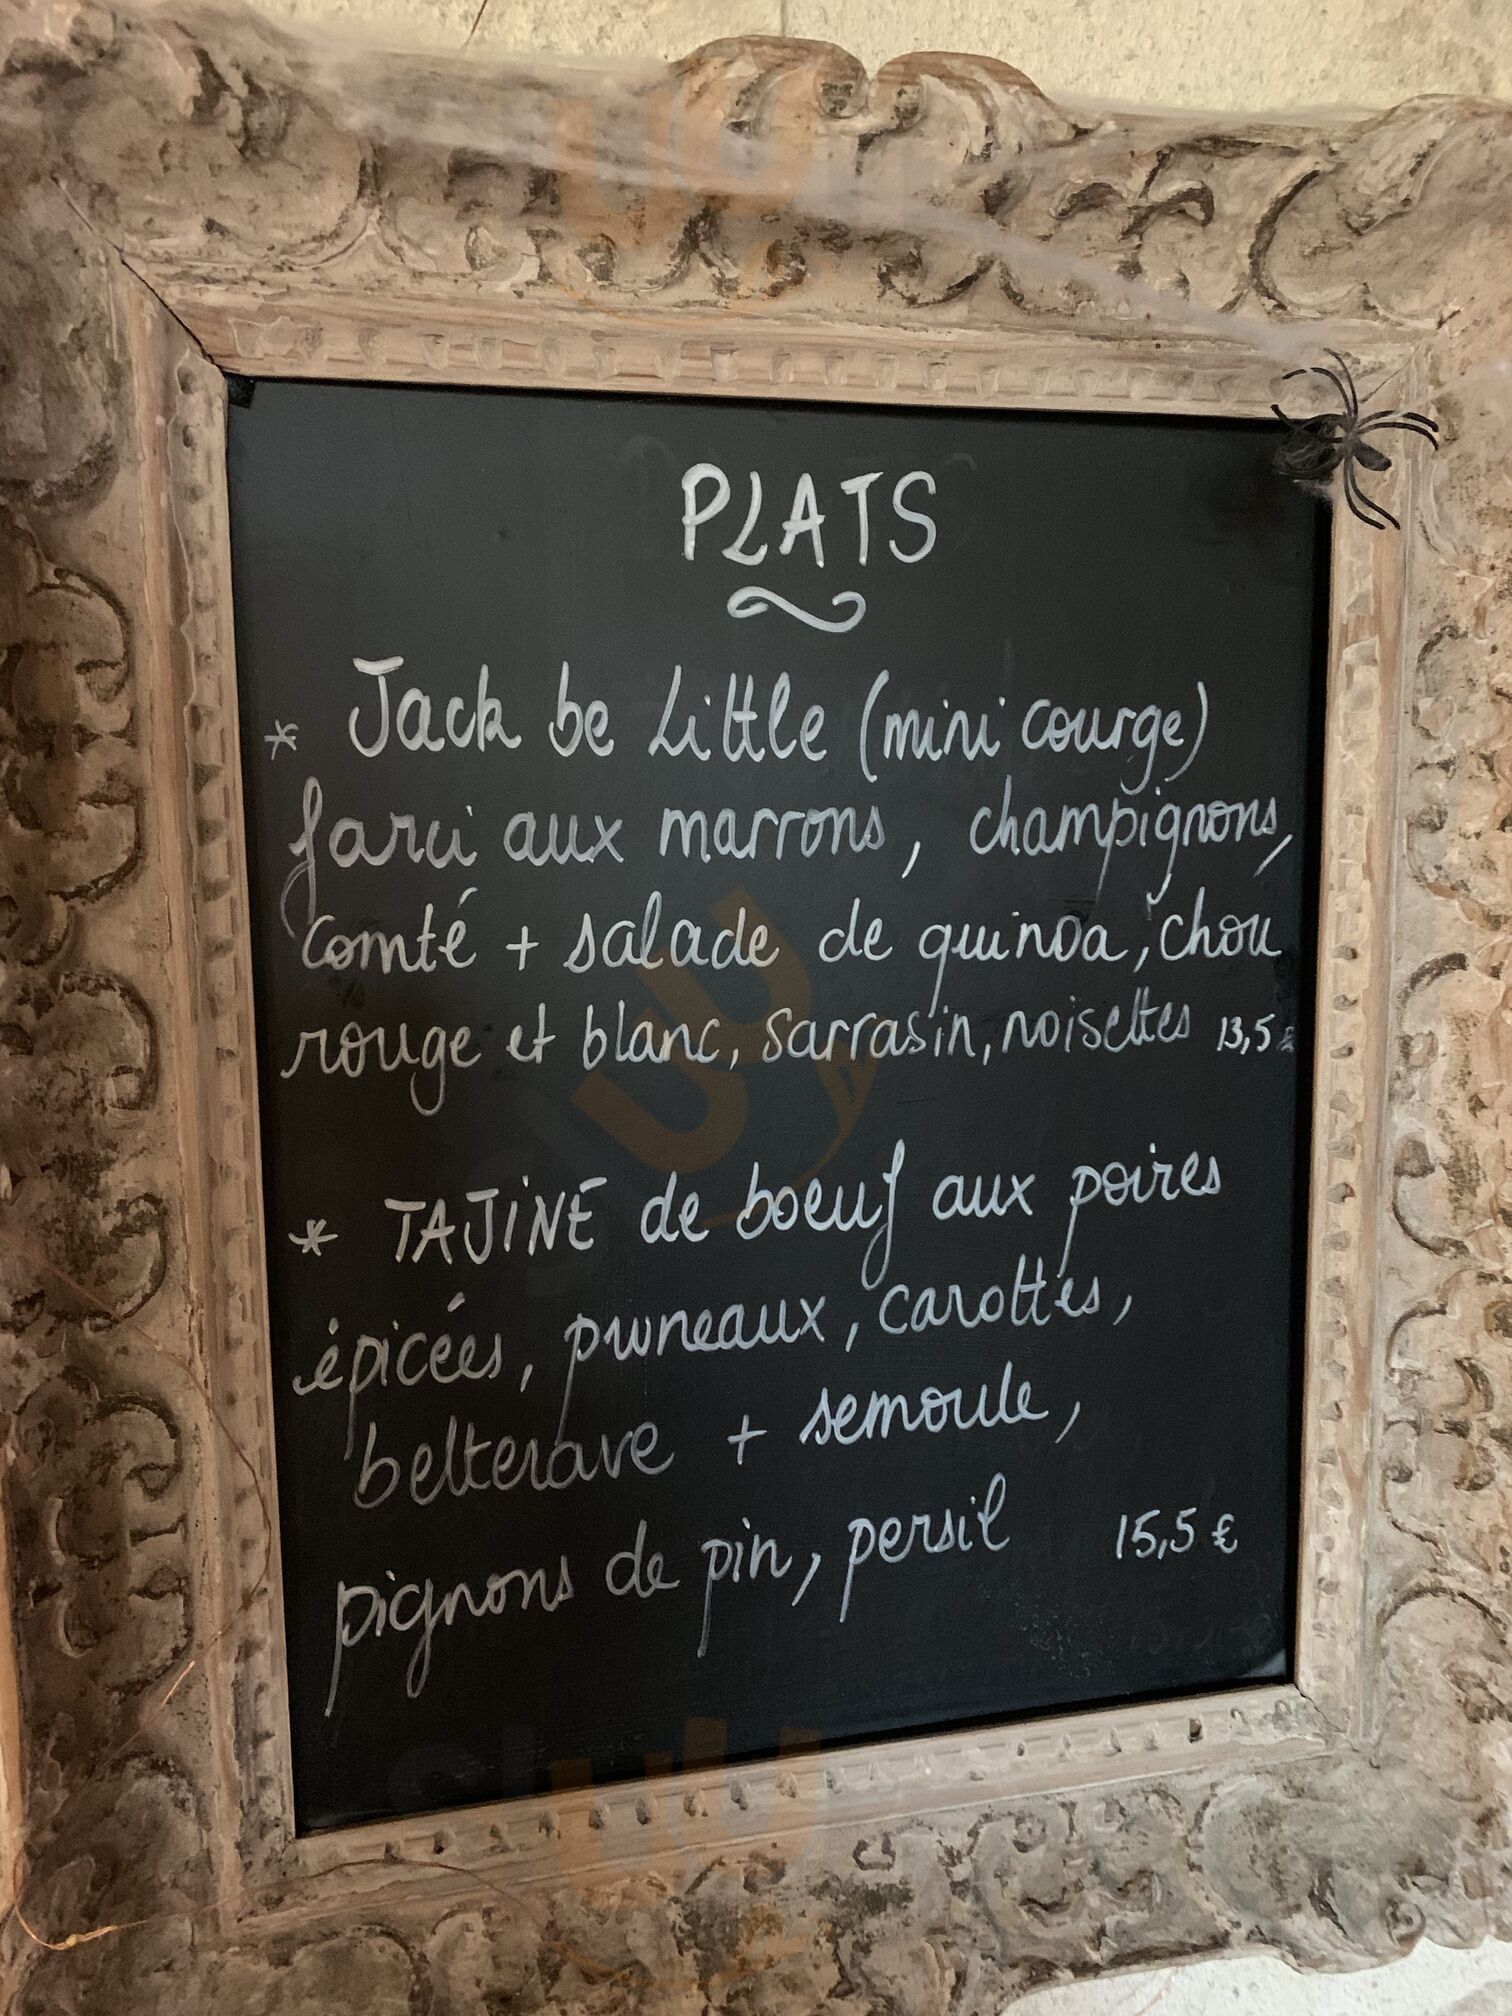 PLATS
* Jack be Little (mini courge)
farci aux marrons, champignons,
comté + salade de quinoa, chou
rouge et blanc, sarrasin, noisettes 13,5 €
* TAJINE de boeuf aux poires
épicées, pruneaux, carottes,
betterave + semoule,
pignons de pin, persil 15,5 €